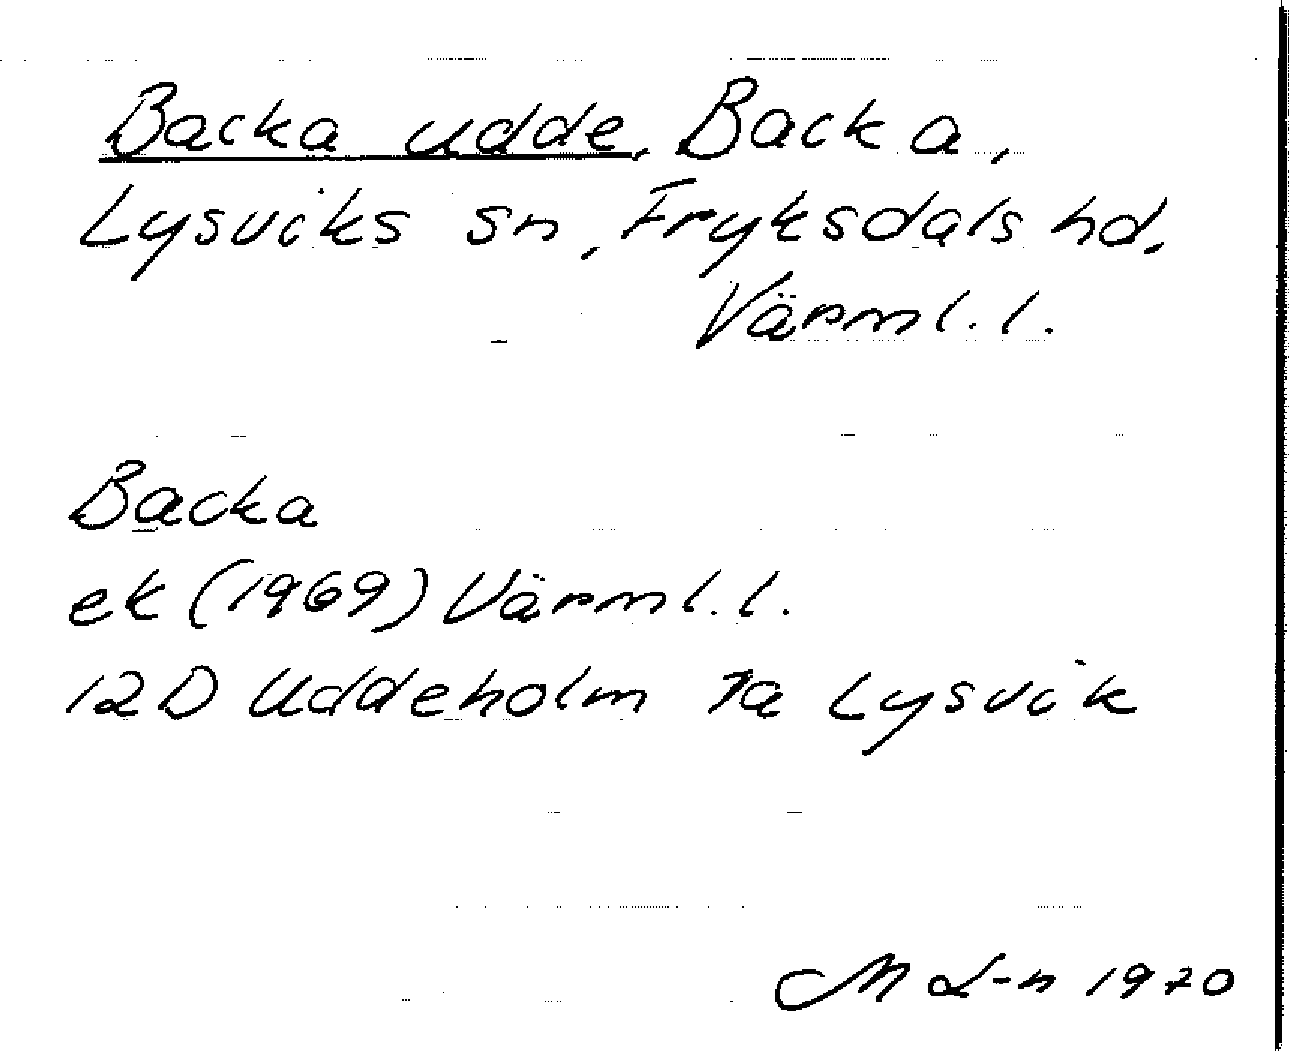 Backa udde, Backa,
Lysviks sn, Fryksdals hd,
Värml. l.
Backa
ek (1969) Värml. l.
12D Uddeholm 7a Lysvik
M L-n 1970